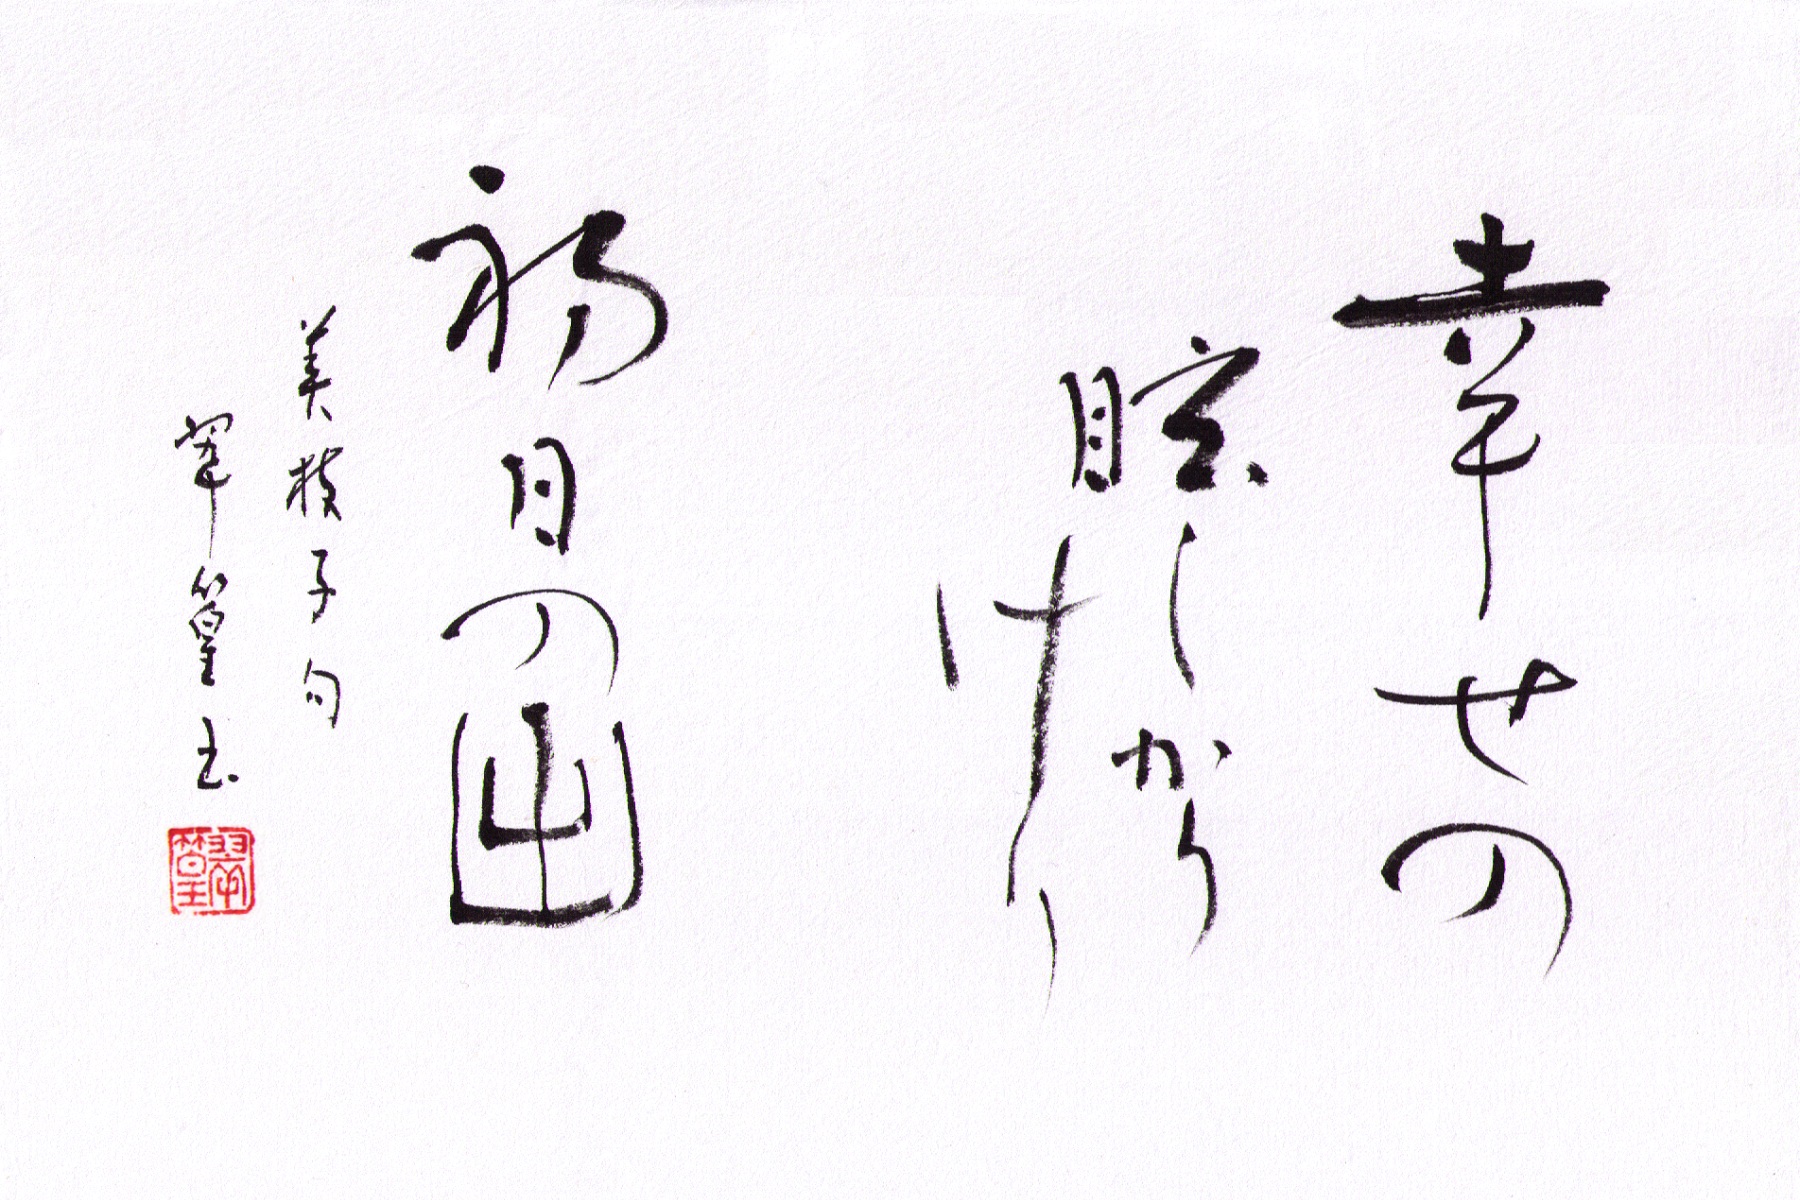 幸せの
眩しかり
けり
初日の出
美枝子句
翠篁書
翠篁